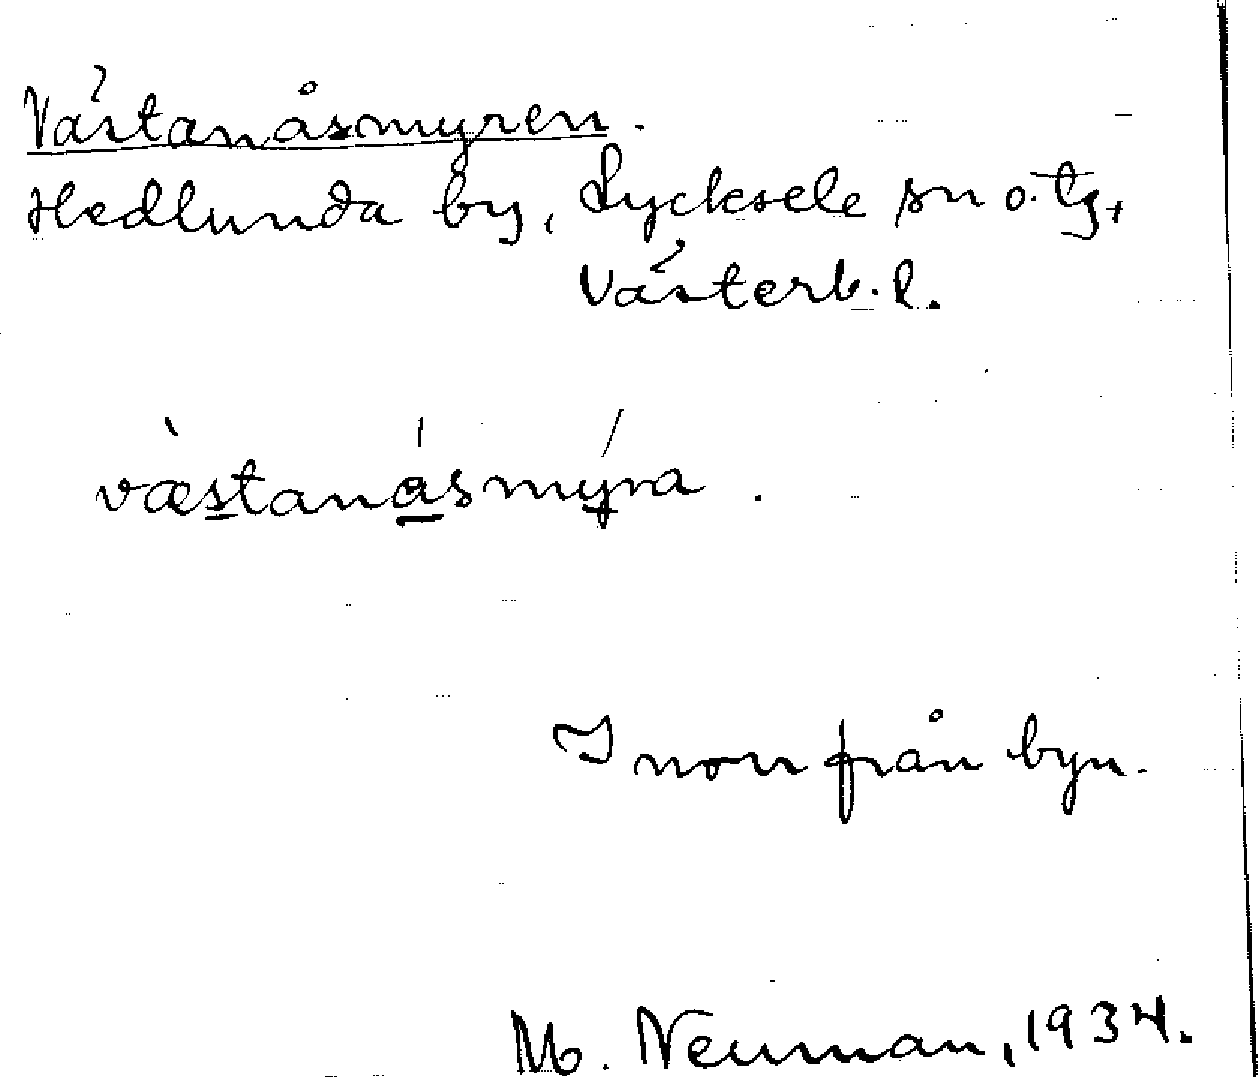 Västanåsmyren.
Hedlunda by, Lycksele sn o. tg,
Västerb. l.
væstanåsmyra.
I norr från byn.
M. Neuman, 1934.